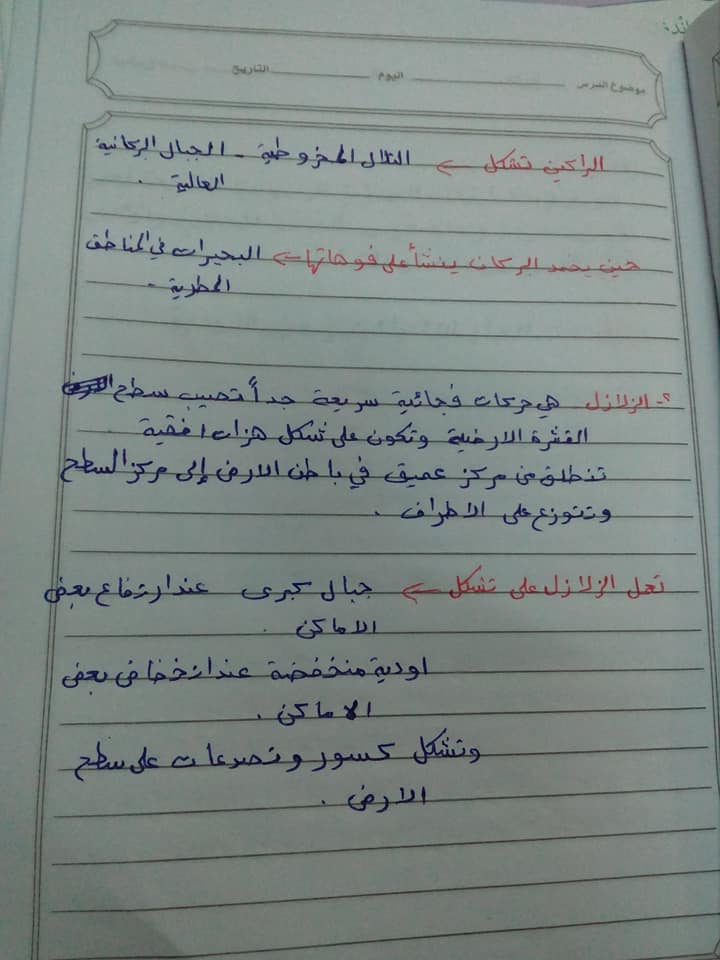 ئدة:
موضوع الدرس اليوم التاريخ
البراكين تشكل ← التلال المخروطية - الجبال البركانية
العالية .
حين يخمد البركان ينشأ على فوهاتها ← البحيرات في المناطق
المطرية .
٢- الزلازل هي حركات فجائية سريعة جداً تصيب سطح
القشرة الارضية وتكون على شكل هزات افقية
تنطلق من مركز عميق في باطن الارض إلى مركز السطح
وتتوزع على الاطراف .
تعمل الزلازل على تشكل ← جبال كبرى عند ارتفاع بعض
الاماكن .
اودية منخفضة عند انخفاض بعض
الاماكن .
وتشكل كسور وتصدعات على سطح
الارض .